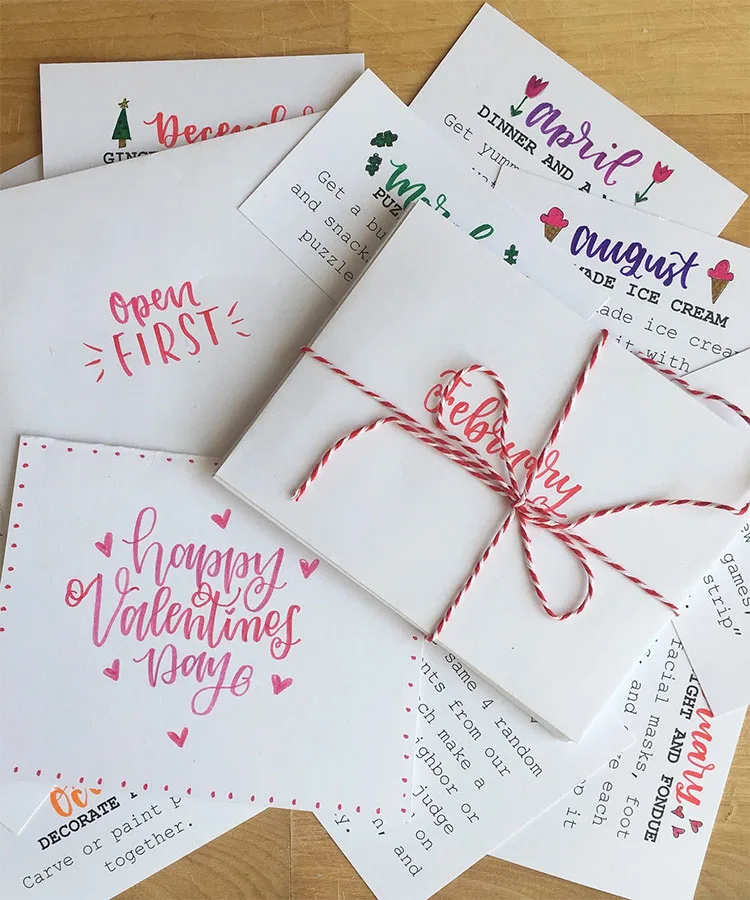 December
april
DINNER AND A
Get yummy
March
Get a bu
and snack
puzzle
august
MADE ICE CREAM
ade ice crea
it with
open
FIRST
February
happy
Valentines
Day
games,
strip"
same 4 random
nts from our
ch make a
ighbor or
judge
on
and
NIGHT AND FONDUE
facial masks, foot
and
re each
p it
DECORATE
Carve or paint p
together.